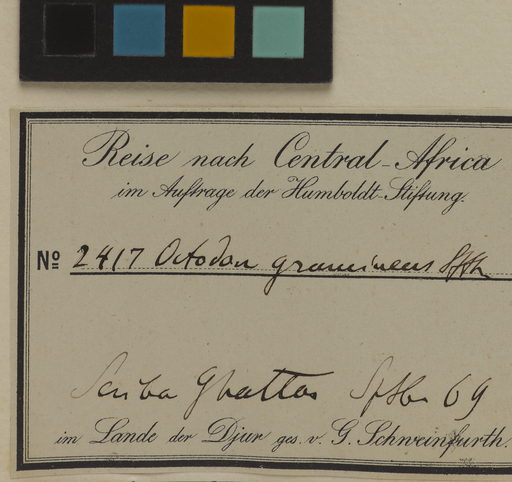 Reise nach Central-Africa
im Auftrage der Humboldt-Stiftung.
Nº 2417 Octodon gramineus Sffth
Seriba Ghattas Sptbr 69
im Lande der Djur ges. v. G. Schweinfurth.